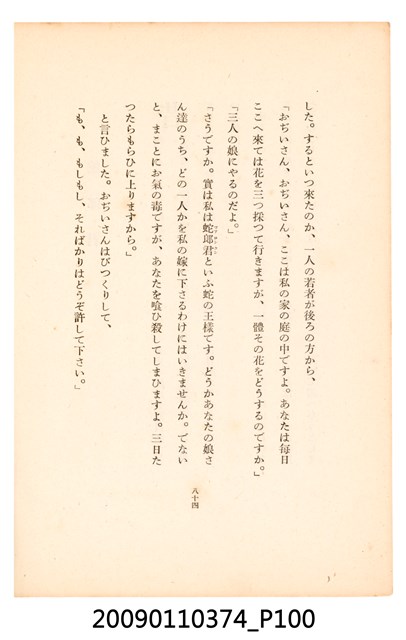 した。するといつ來たのか、一人の若者が後ろの方から、
「おぢいさん、おぢいさん、ここは私の家の庭の中ですよ。あなたは毎日
ここへ來ては花を三つ採つて行きますが、一體その花をどうするのですか。」
「三人の娘にやるのだよ。」
「さうですか。實は私は蛇郎君といふ蛇の王樣です。どうかあなたの娘さ
ん達のうち、どの一人かを私の嫁に下さるわけにはいきませんか。でない
と、まことにお氣の毒ですが、あなたを喰ひ殺してしまひますよ。三日た
つたらもらひに上りますから。」
と言ひました。おぢいさんはびつくりして、
「も、も、もしもし、そればかりはどうぞ許して下さい。」
八十四
20090110374_P100